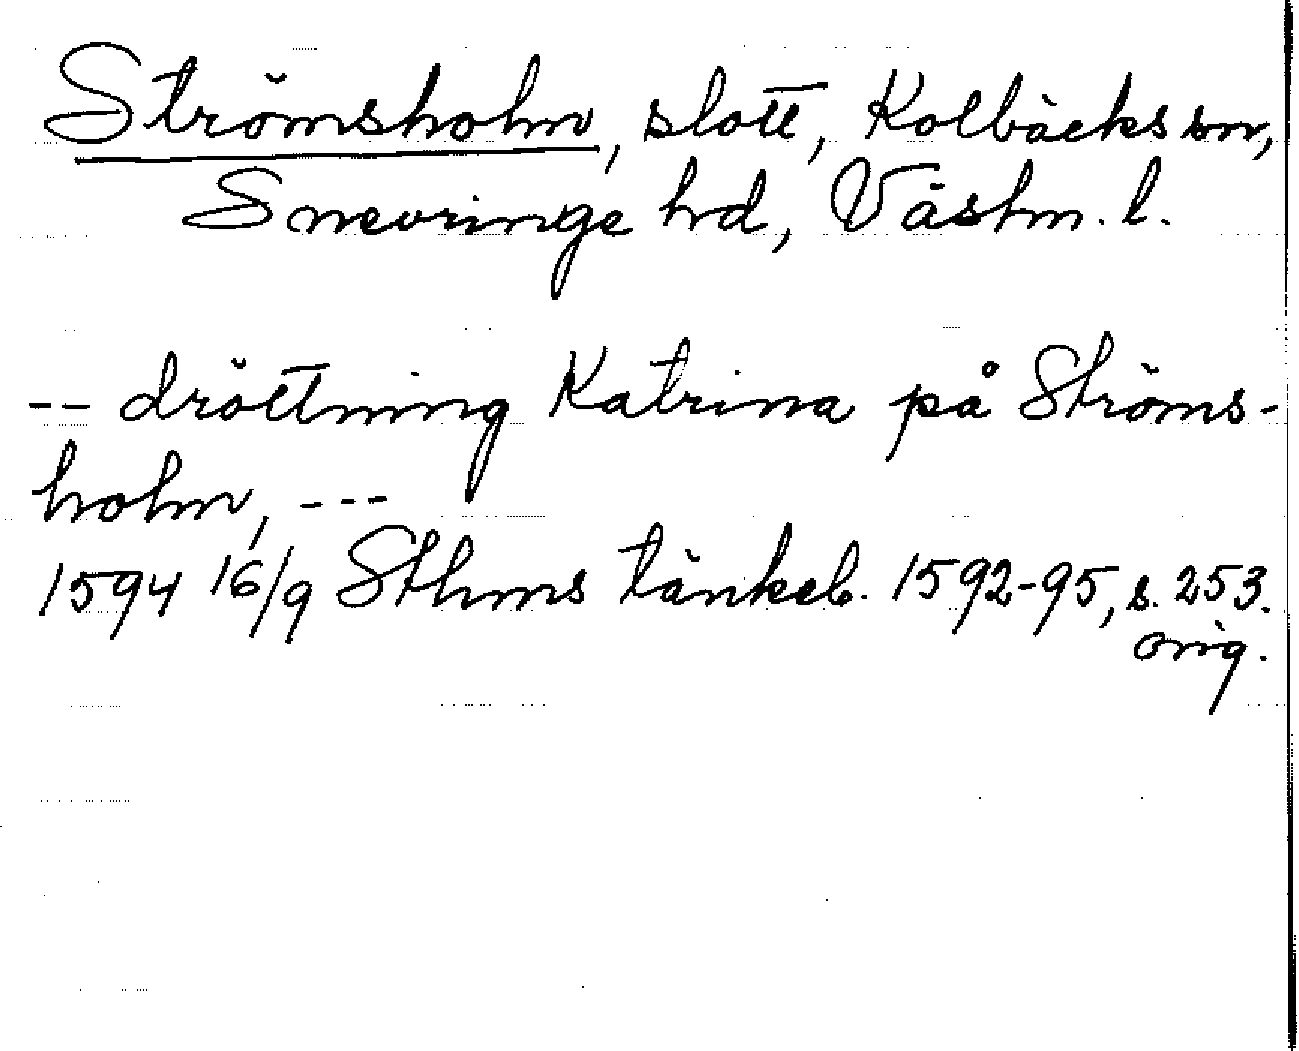 Strömsholm, slott, Kolbäcks sn,
Snevringe hd, Västm. l.
-- dröttning Katrina på Ströms-
holm, ---
1594 16/9 Sthms tänkeb. 1592-95, s. 253.
orig.